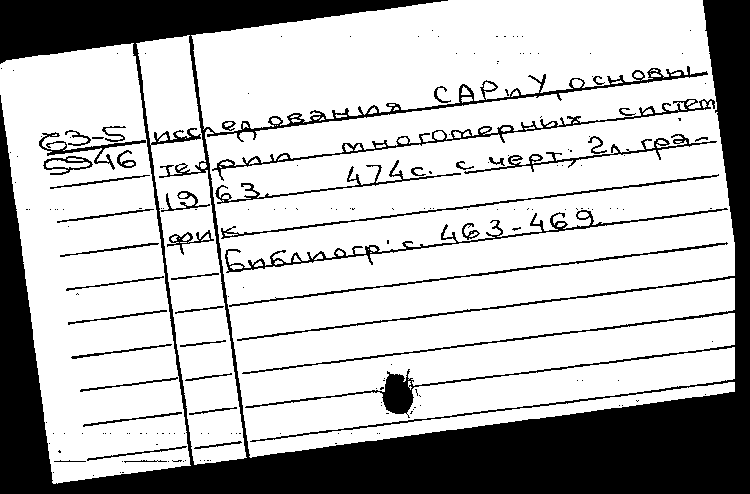 63-5 исследования САРиУ, основы
5946 теории многомерных систем
1963. 474с. с черт; 2л. гра-
фик.
Библиогр: с. 463-469.